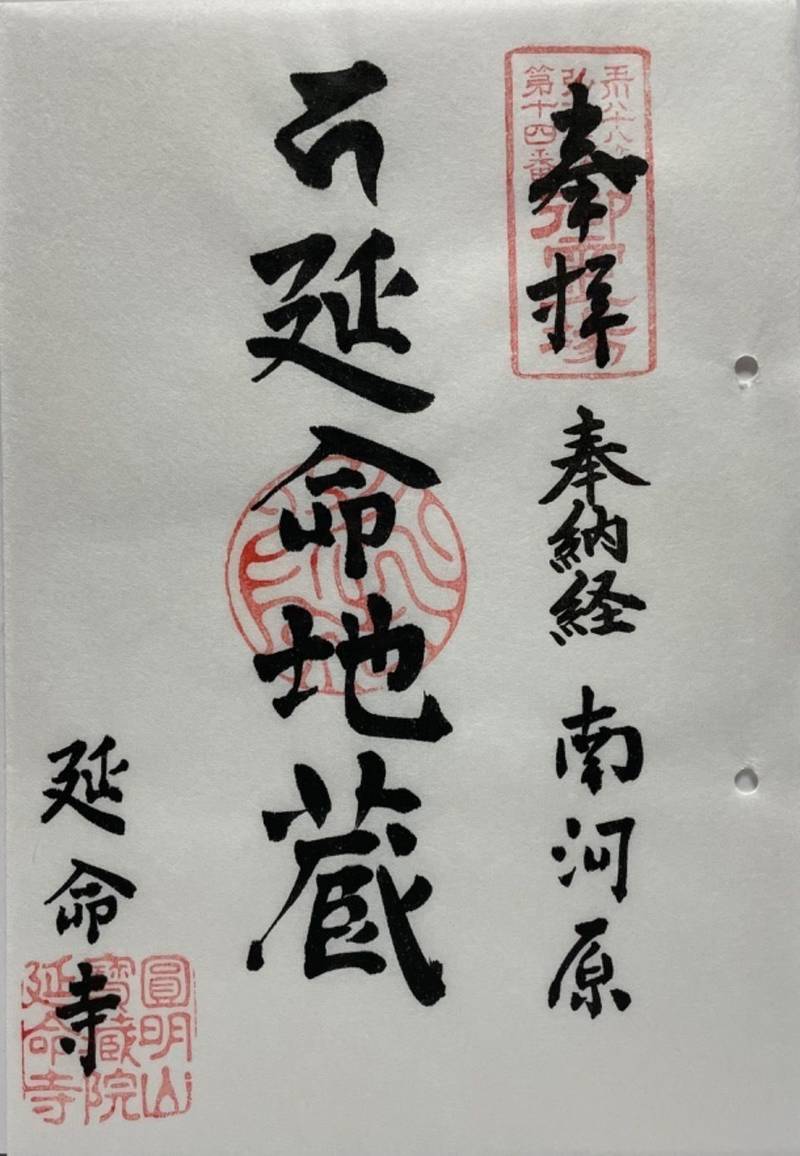 奉拝
玉川八十八
第十四番
御靈場
奉納経 南河原
延命地蔵
延命寺
圓明山
寶蔵院
延命寺